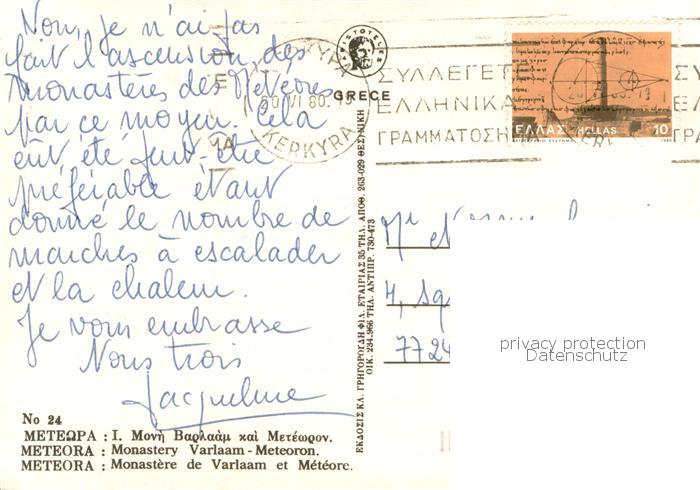 Non, je n'ai pas
fait l'ascension des
monastères des Météores
par ce moyen. Cela
eût été peut-être
préférable étant
donné le nombre de
marches à escalader
et la chaleur.
Je vous embrasse
Nous trois
Jacqueline
No 24
ΜΕΤΕΩΡΑ : Ι. Μονὴ Βαρλαὰμ καὶ Μετέωρον.
METEORA : Monastery Varlaam - Meteoron.
METEORA : Monastère de Varlaam et Météore.
ΕΚΔΟΣΙΣ ΚΛ. ΓΡΗΓΟΡΟΥΔΗ ΦΙΛ. ΕΤΑΙΡΙΑΣ 35 ΤΗΛ. ΑΠΟΘ. 263-029 ΘΕΣ/ΝΙΚΗ
ΟΙΚ. 234.366 ΤΗΛ. ΑΝΤΙΠΡ. 730-473
ARISTOTELES
GREECE
ΚΕΡΚΥΡΑ
20 VI 80
KERKYRA
ΣΥΛΛΕΓΕΤΕ
ΕΛΛΗΝΙΚΑ
ΓΡΑΜΜΑΤΟΣΗ
ΣΥ
ΕΛ
ΕΛΛΑΣ HELLAS 10
Mr et
4, Sq
7724
privacy protection
Datenschutz